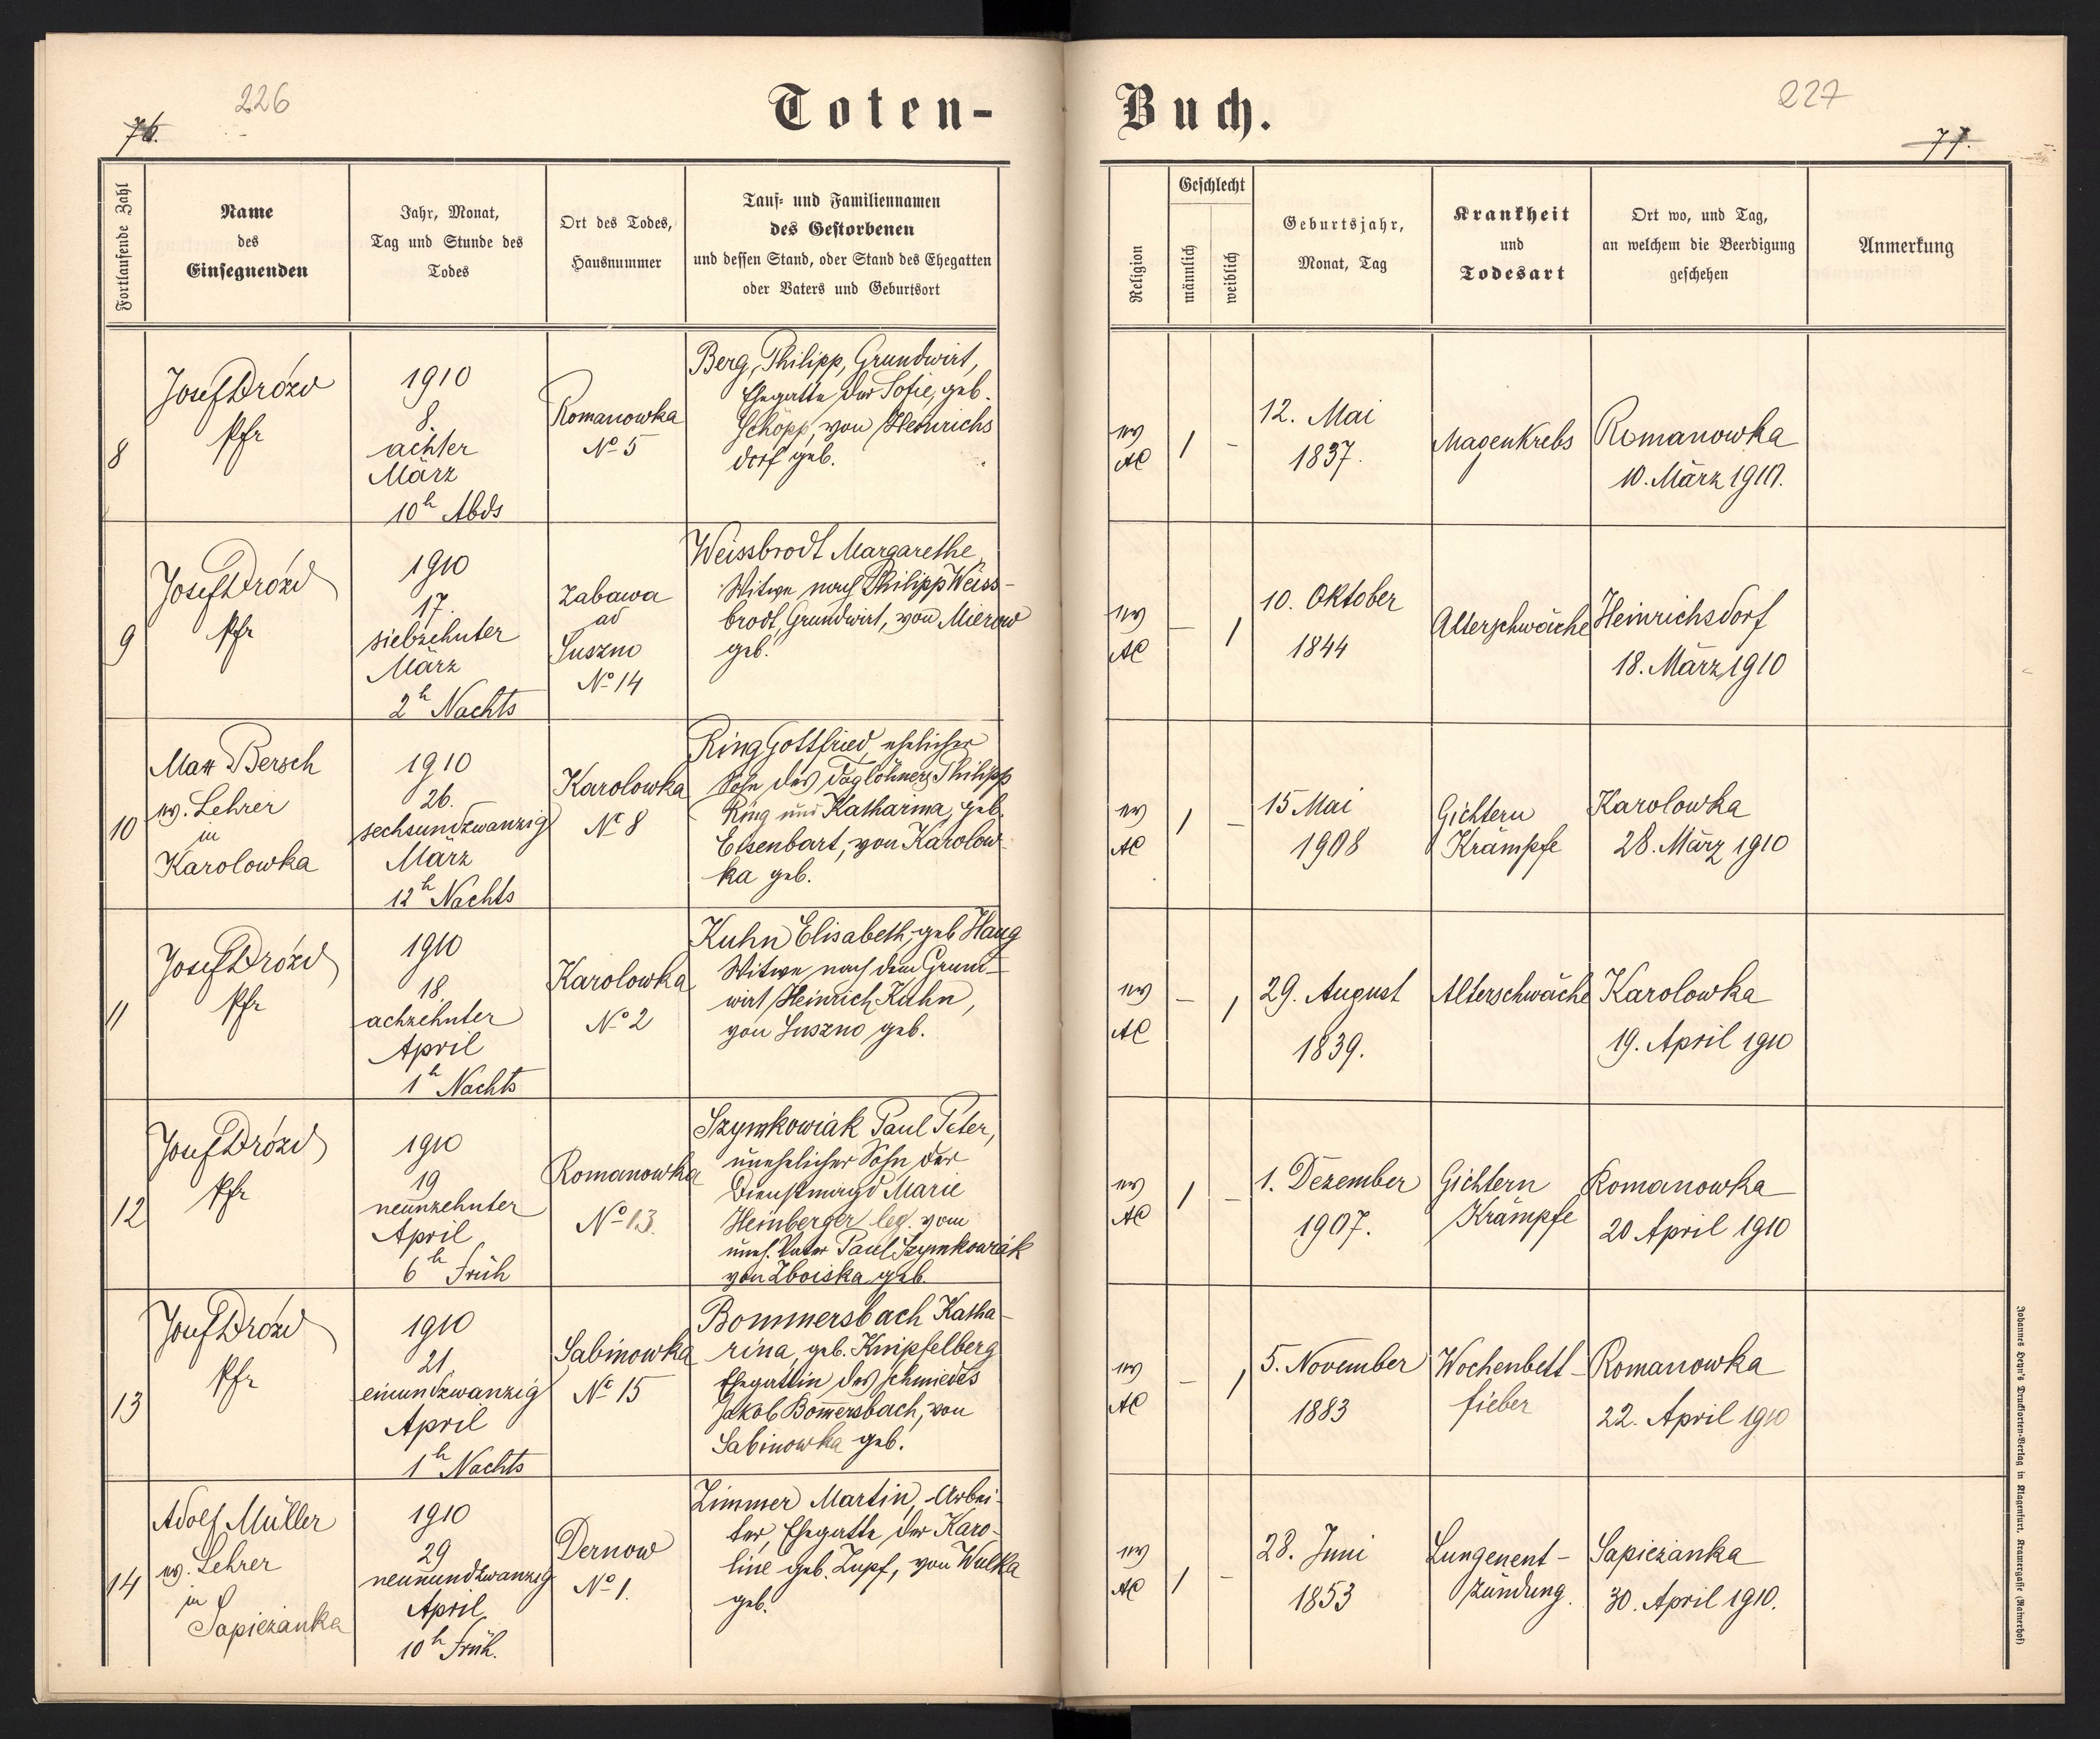 226
76.
Toten-
Fortlaufende Zahl
Name
des
Einsegnenden
Jahr, Monat,
Tag und Stunde des
Todes
Ort des Todes,
Hausnummer
Tauf- und Familiennamen
des Gestorbenen
und dessen Stand, oder Stand des Ehegatten
oder Vaters und Geburtsort
8
Josef Drózd
Pfr
1910
8.
achter
März
10h Abds
Romanowka
No 5
Berg, Philipp, Grundwirt,
Ehegatte der Sofie, geb.
Schöpp, von Heinrichs
dorf geb.
9
Josef Drózd
Pfr
1910
17.
siebzehnter
März
2h Nachts
Zabawa
ad
Suszno
No 14
Weissbrodt Margarethe,
Witwe nach Philipp Weiss-
brodt, Grundwirt, von Mierow
geb.
10
Max Bersch
ev. Lehrer
in
Karolowka
1910
26.
sechsundzwanzig
März
12h Nachts
Karolowka
No 8
Ring Gottfried, ehelicher
Sohn des Taglöhners Philipp
Ring und Katharina, geb.
Eisenbart, von Karolow-
ka geb.
11
Josef Drózd
Pfr
1910
18.
achzehnter
April
1h Nachts
Karolowka
No 2
Kuhn Elisabeth, geb Haug
Witwe nach dem Grund-
wirt Heinrich Kuhn,
von Suszno geb.
12
Josef Drózd
Pfr
1910
19
neunzehnter
April
6h Früh
Romanowka
No 13.
Szymkowiak Paul Peter,
unehelicher Sohn der
Dienstmagd Marie
Heinberger leg. vom
unehl. Vater Paul Szymkowiak
von Zboiska geb.
13
Josef Drózd
Pfr
1910
21.
einundzwanzig
April
1h Nachts
Sabinowka
No 15
Bommersbach Katha-
rina, geb. Knipfelberg
Ehegattin des Schmiedes
Jakob Bom̄ersbach, von
Sabinowka geb.
14
Adolf Müller
ev. Lehrer
in
Sapiezanka
1910
29
neunundzwanzig
April
10h Früh.
Dernow
No 1.
Zimmer Martin, Arbei-
ter, Ehegatte der Karo-
line geb. Zupf, von Wulka
geb.
227
77.
Buch.
Religion
Geschlecht
männlich
weiblich
Geburtsjahr,
Monat, Tag
Krankheit
und
Todesart
Ort wo, und Tag,
an welchem die Beerdigung
geschehen
Anmerkung
ev
AC
1
-
12. Mai
1837.
Magenkrebs
Romanowka
10. März 1910.
ev
AC
-
1
10. Oktober
1844
Alterschwäche
Heinrichsdorf
18. März 1910
ev
AC
1
-
15 Mai
1908
Gichtern
Krämpfe
Karolowka
28. März 1910
ev
AC
-
1
29. August
1839.
Alterschwäche
Karolowka
19. April 1910
ev
AC
1
-
1. Dezember
1907.
Gichtern
Krämpfe
Romanowka
20 April 1910
ev
AC
-
1
5. November
1883
Wochenbett-
fieber
Romanowka
22. April 1910
ev
AC
1
-
28. Juni
1853
Lungenent-
zündung.
Sapiezanka
30. April 1910.
Johannes Heyn's Drucksorten-Verlag in Klagenfurt. Kramergasse (Rainerhof)